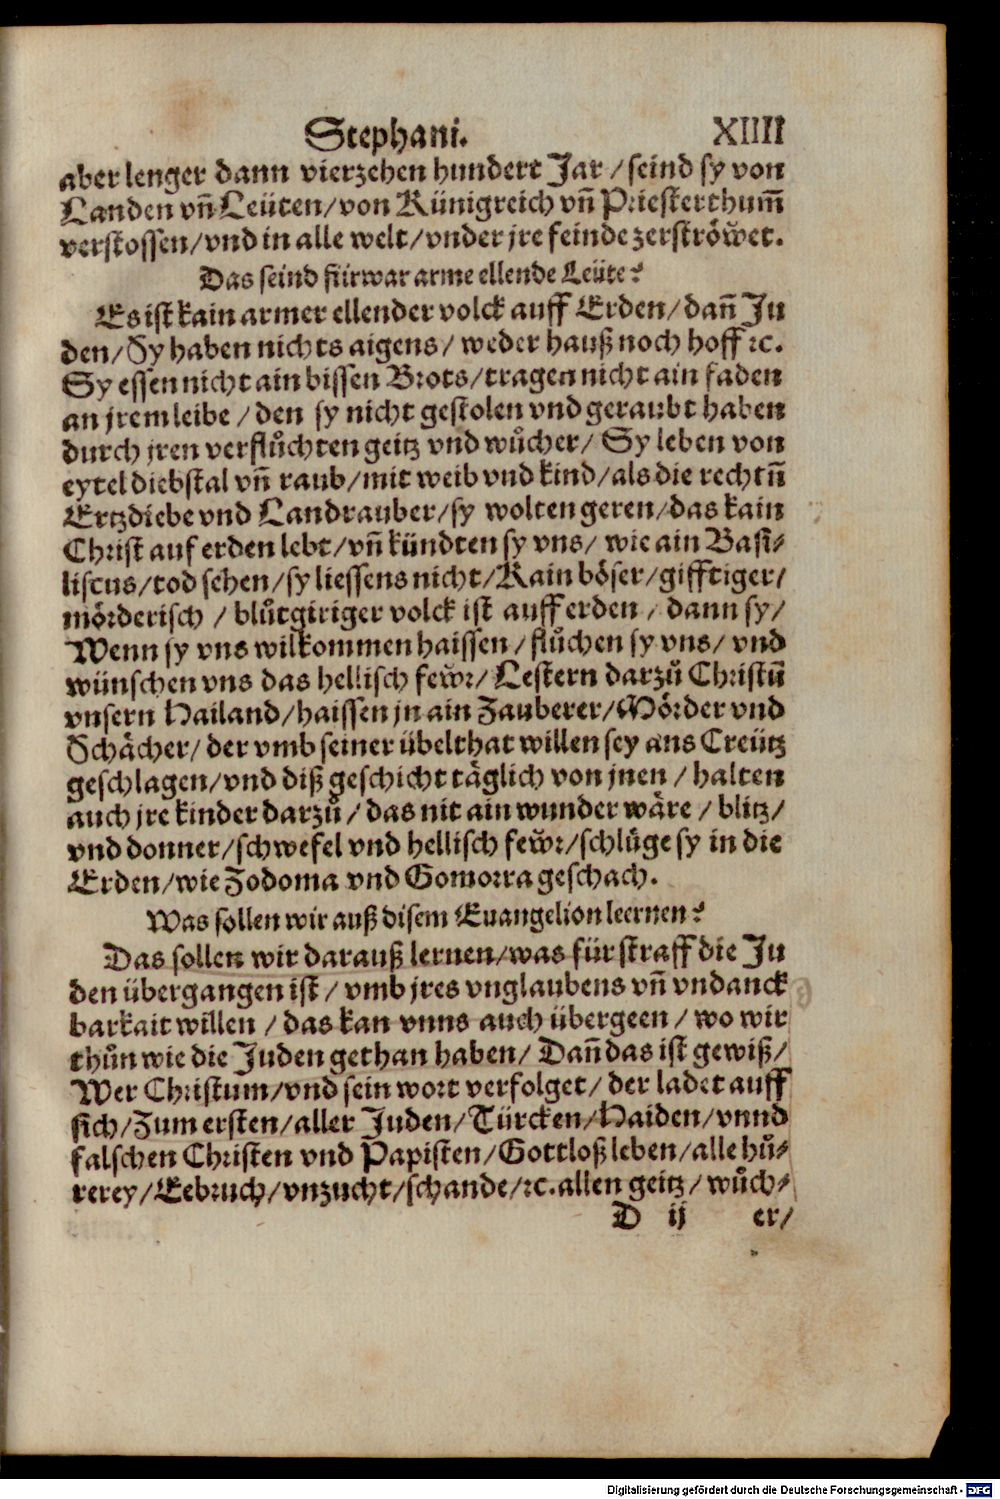 Stephani. XIIII
aber lenger dann vierzehen hundert Jar / seind sy von
Landen vñ Leüten / von Künigreich vñ Priesterthum̃
verstossen / vnd in alle welt / vnder jre feinde zerströwet.
Das seind fürwar arme ellende Leüte?
Es ist kain armer ellender volck auff Erden / dañ Ju
den / Sy haben nichts aigens / weder hauß noch hoff ꝛc.
Sy essen nicht ain bissen Brots / tragen nicht ain faden
an jrem leibe / den sy nicht gestolen vnd geraubt haben
durch jren verflůchten geitz vnd wůcher / Sy leben von
eytel diebstal vñ raub / mit weib vnd kind / als die rechtñ
Ertzdiebe vnd Landrauber / sy wolten geren / das kain
Christ auf erden lebt / vñ kündten sy vns / wie ain Basi-
liscus / tod sehen / sy liessens nicht / Kain böser / gifftiger /
mörderisch / blůtgiriger volck ist auff erden / dann sy /
Wenn sy vns wilkommen haissen / flůchen sy vns / vnd
wünschen vns das hellisch fewr / Lestern darzů Christũ
vnsern Hailand / haissen jn ain Zauberer / Mörder vnd
Schächer / der vmb seiner übelthat willen sey ans Creütz
geschlagen / vnd diß geschicht täglich von jnen / halten
auch jre kinder darzů / das nit ain wunder wäre / blitz /
vnd donner / schwefel vnd hellisch fewr / schlüge sy in die
Erden / wie Zodoma vnd Gomorra geschach.
Was sollen wir auß disem Euangelion leernen?
Das sollen wir darauß lernen / was für straff die Ju
den übergangen ist / vmb jres vnglaubens vñ vndanck
barkait willen / das kan vnns auch übergeen / wo wir
thůn wie die Juden gethan haben / Dañ das ist gewiß /
Wer Christum / vnd sein wort verfolget / der ladet auff
sich / Zum ersten / aller Juden / Türcken / Haiden / vnnd
falschen Christen vnd Papisten / Gottloß leben / alle hů-
rerey / Eebruch / vnzucht / schande / ꝛc. allen geitz / wůch-
D ij er /
Digitalisierung gefördert durch die Deutsche Forschungsgemeinschaft - DFG